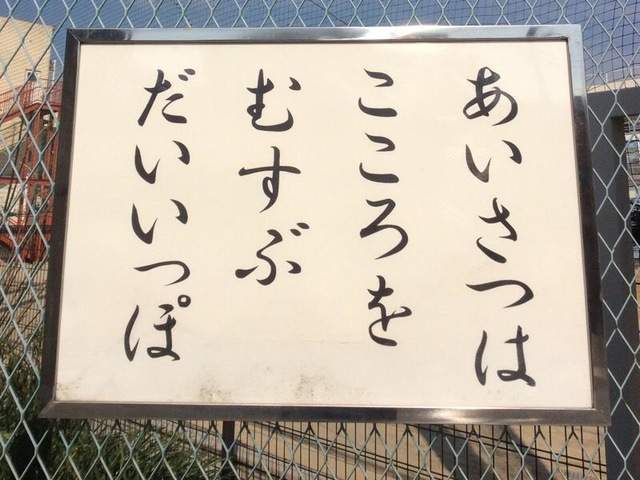 あいさつは
こころを
むすぶ
だいいっぽ